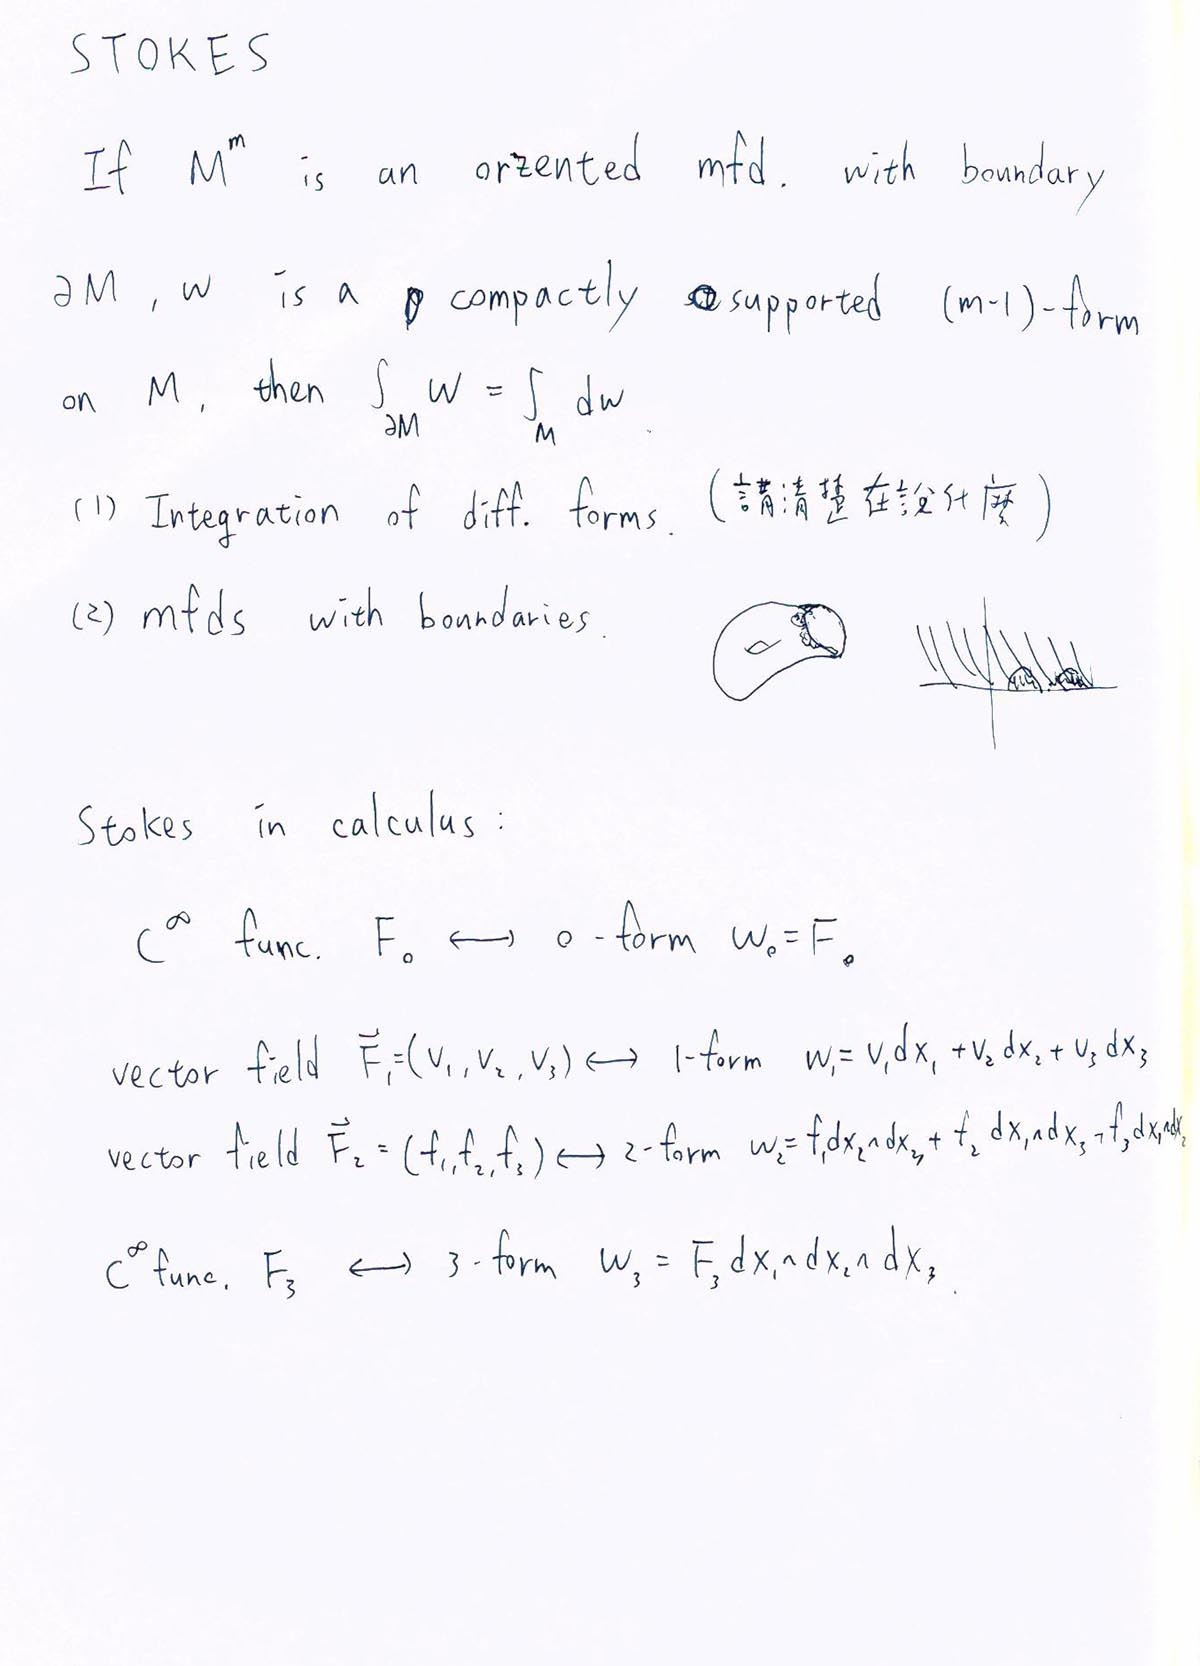 STOKES
If Mᵐ is an oriented mfd. with boundary
∂M, w is a compactly supported (m-1)-form
on M, then ∫_∂M w = ∫_M dw.
(1) Integration of diff. forms. (講清楚在說什麼)
(2) mfds with boundaries.
Stokes in calculus:
C^∞ func. F₀ ↔ 0-form w₀ = F₀
vector field F⃗₁ = (v₁, v₂, v₃) ↔ 1-form w₁ = v₁dx₁ + v₂dx₂ + v₃dx₃
vector field F⃗₂ = (f₁, f₂, f₃) ↔ 2-form w₂ = f₁dx₂∧dx₃ + f₂ dx₁∧dx₃ + f₃dx₁∧dx₂
C^∞ func. F₃ ↔ 3-form w₃ = F₃ dx₁∧dx₂∧dx₃.